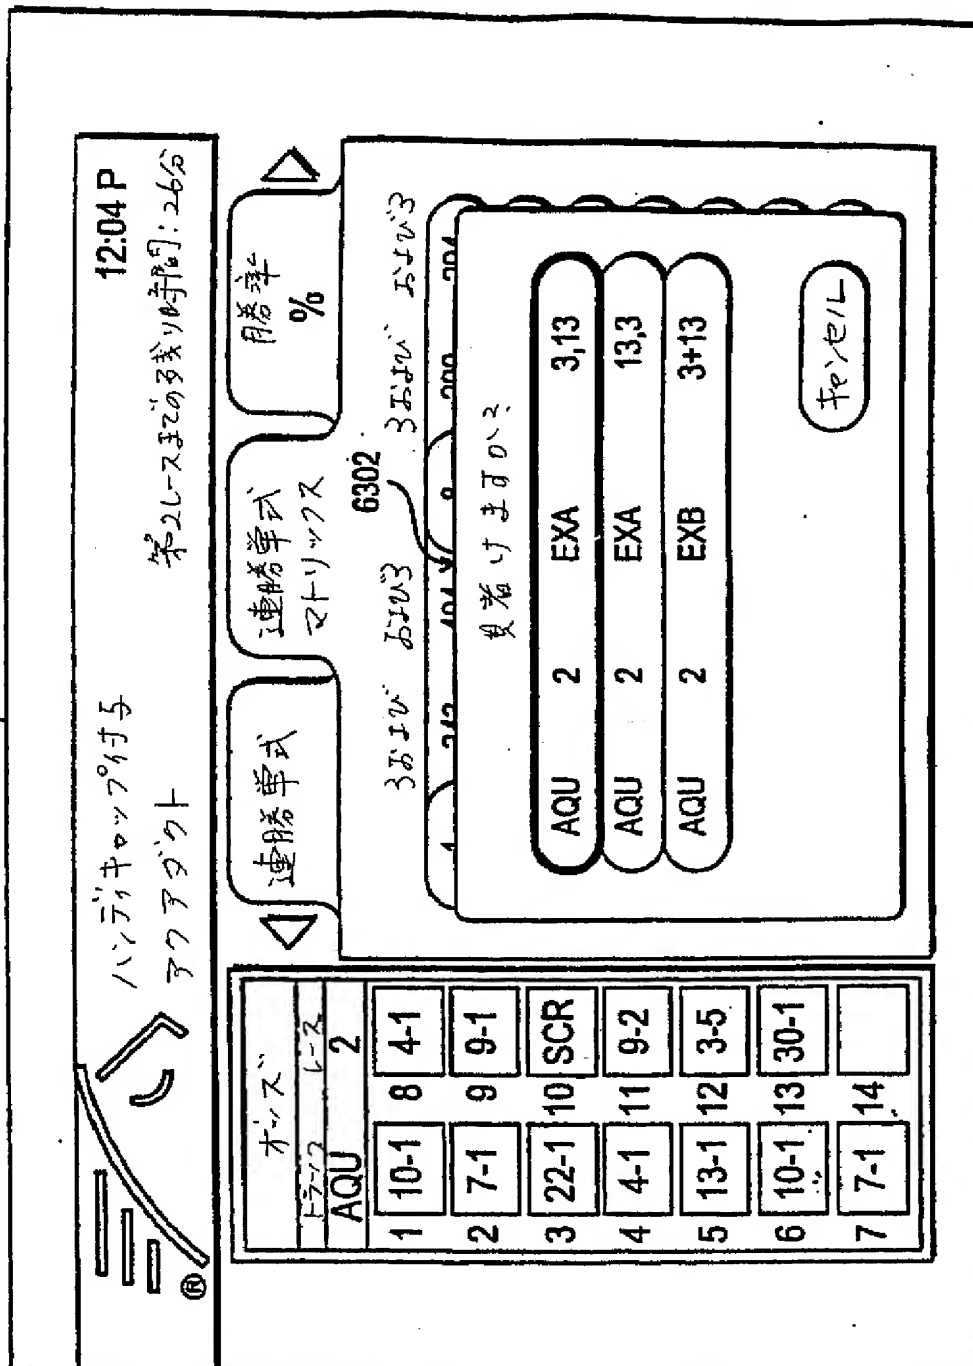 ハンディキャップ付与
アクアダクト
12:04 P
第2レースまでの残り時間:26分
オッズ
トラック レース
AQU 2
1 10-1 8 4-1
2 7-1 9 9-1
3 22-1 10 SCR
4 4-1 11 9-2
5 13-1 12 3-5
6 10-1 13 30-1
7 7-1 14
®
連勝単式
連勝単式
マトリックス
勝率
%
6302
3および および3 3および および3
賭けますか?
AQU 2 EXA 3,13
AQU 2 EXA 13,3
AQU 2 EXB 3+13
キャンセル